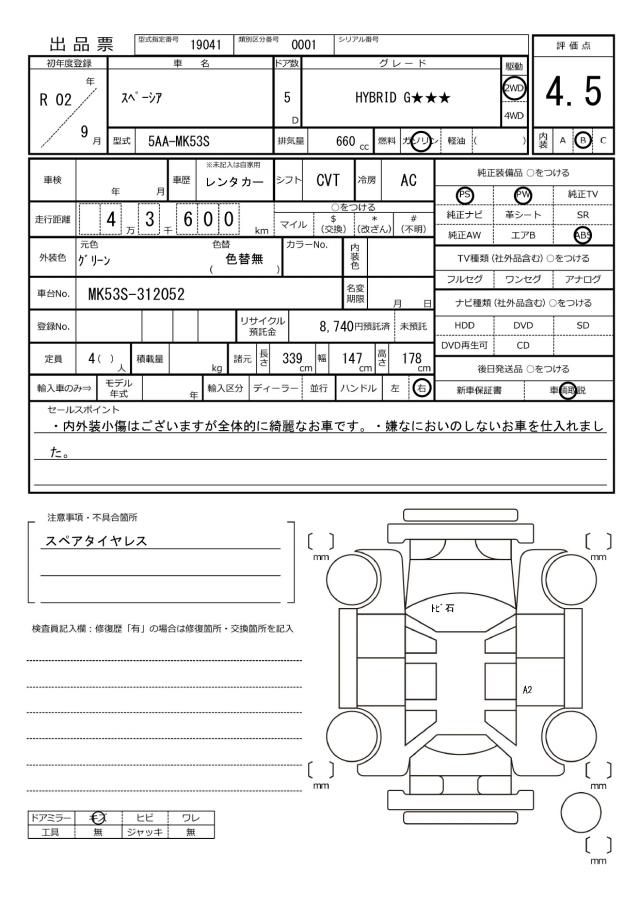 出品票 型式指定番号 19041 類別区分番号 0001 シリアル番号
初年度登録 車名 ドア数 グレード 駆動 評価点
R 02 年 9 月 スペーシア 5 D HYBRID G★★★ 2WD 4WD 4.5
型式 5AA-MK53S 排気量 660 cc 燃料 ガソリン 軽油 ( ) 内装 A B C
車検 年 月 車歴 ※未記入は自家用 レンタカー シフト CVT 冷房 AC 純正装備品 ○をつける
PS PW 純正TV
走行距離 4 万 3 千 6 0 0 km ○をつける
マイル $ (交換) * (改ざん) # (不明)
純正ナビ 革シート SR
純正AW エアB ABS
外装色 元色 グリーン 色替 ( 色替無 ) カラーNo. 内装色
TV種類 (社外品含む) ○をつける
フルセグ ワンセグ アナログ
車台No. MK53S-312052 名変期限 月 日
ナビ種類 (社外品含む) ○をつける
登録No. リサイクル預託金 8,740円預託済 未預託
HDD DVD SD
DVD再生可 CD
定員 4 ( ) 人 積載量 kg 諸元 長さ 339 cm 幅 147 cm 高さ 178 cm
後日発送品 ○をつける
輸入車のみ⇒ モデル年式 年 輸入区分 ディーラー 並行 ハンドル 左 右
新車保証書 車輌取説
セールスポイント
・内外装小傷はございますが全体的に綺麗なお車です。・嫌なにおいのしないお車を仕入れまし
た。
注意事項・不具合箇所
スペアタイヤレス
検査員記入欄：修復歴「有」の場合は修復箇所・交換箇所を記入
〔 〕 mm
〔 〕 mm
トビ石
A2
〔 〕 mm
〔 〕 mm
〔 〕 mm
ドアミラー キズ ヒビ ワレ
工具 無 ジャッキ 無